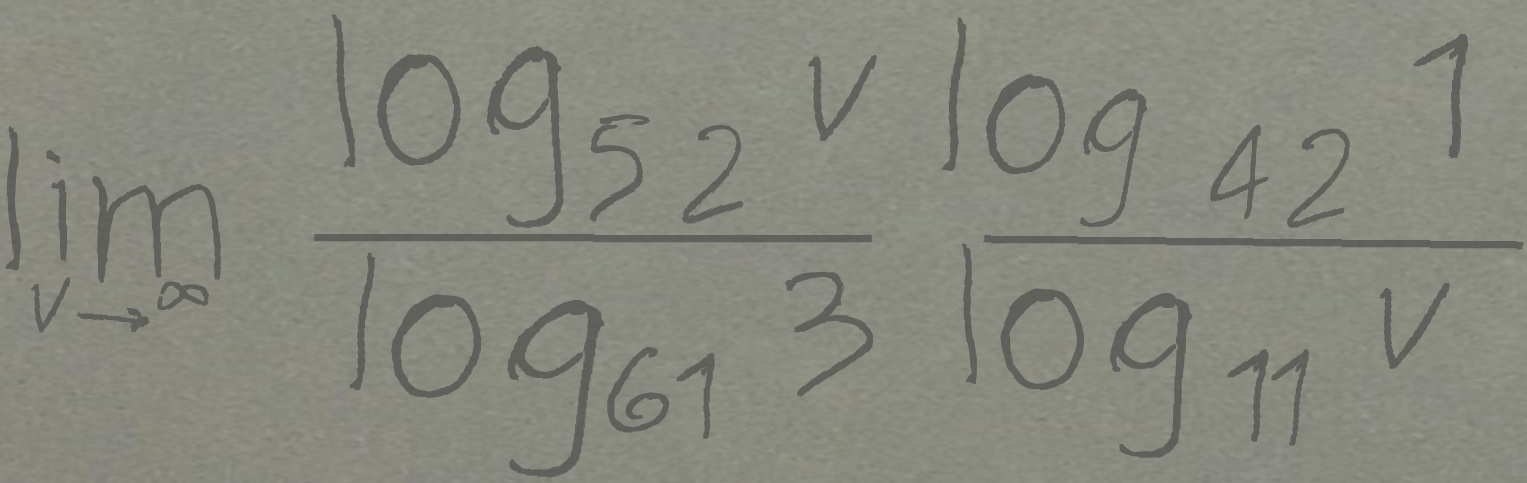 \lim_{v \to \infty} \frac{\log_{52} v}{\log_{61} 3} \frac{\log_{42} 1}{\log_{11} v}